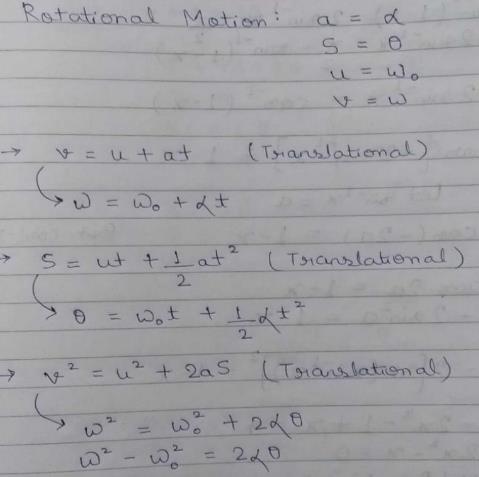 Rotational Motion: a = α
S = θ
u = ω₀
v = ω
→ v = u + at (Translational)
↳ ω = ω₀ + αt
→ S = ut + 1/2 at² (Translational)
↳ θ = ω₀t + 1/2 αt²
→ v² = u² + 2aS (Translational)
↳ ω² = ω₀² + 2αθ
ω² - ω₀² = 2αθ